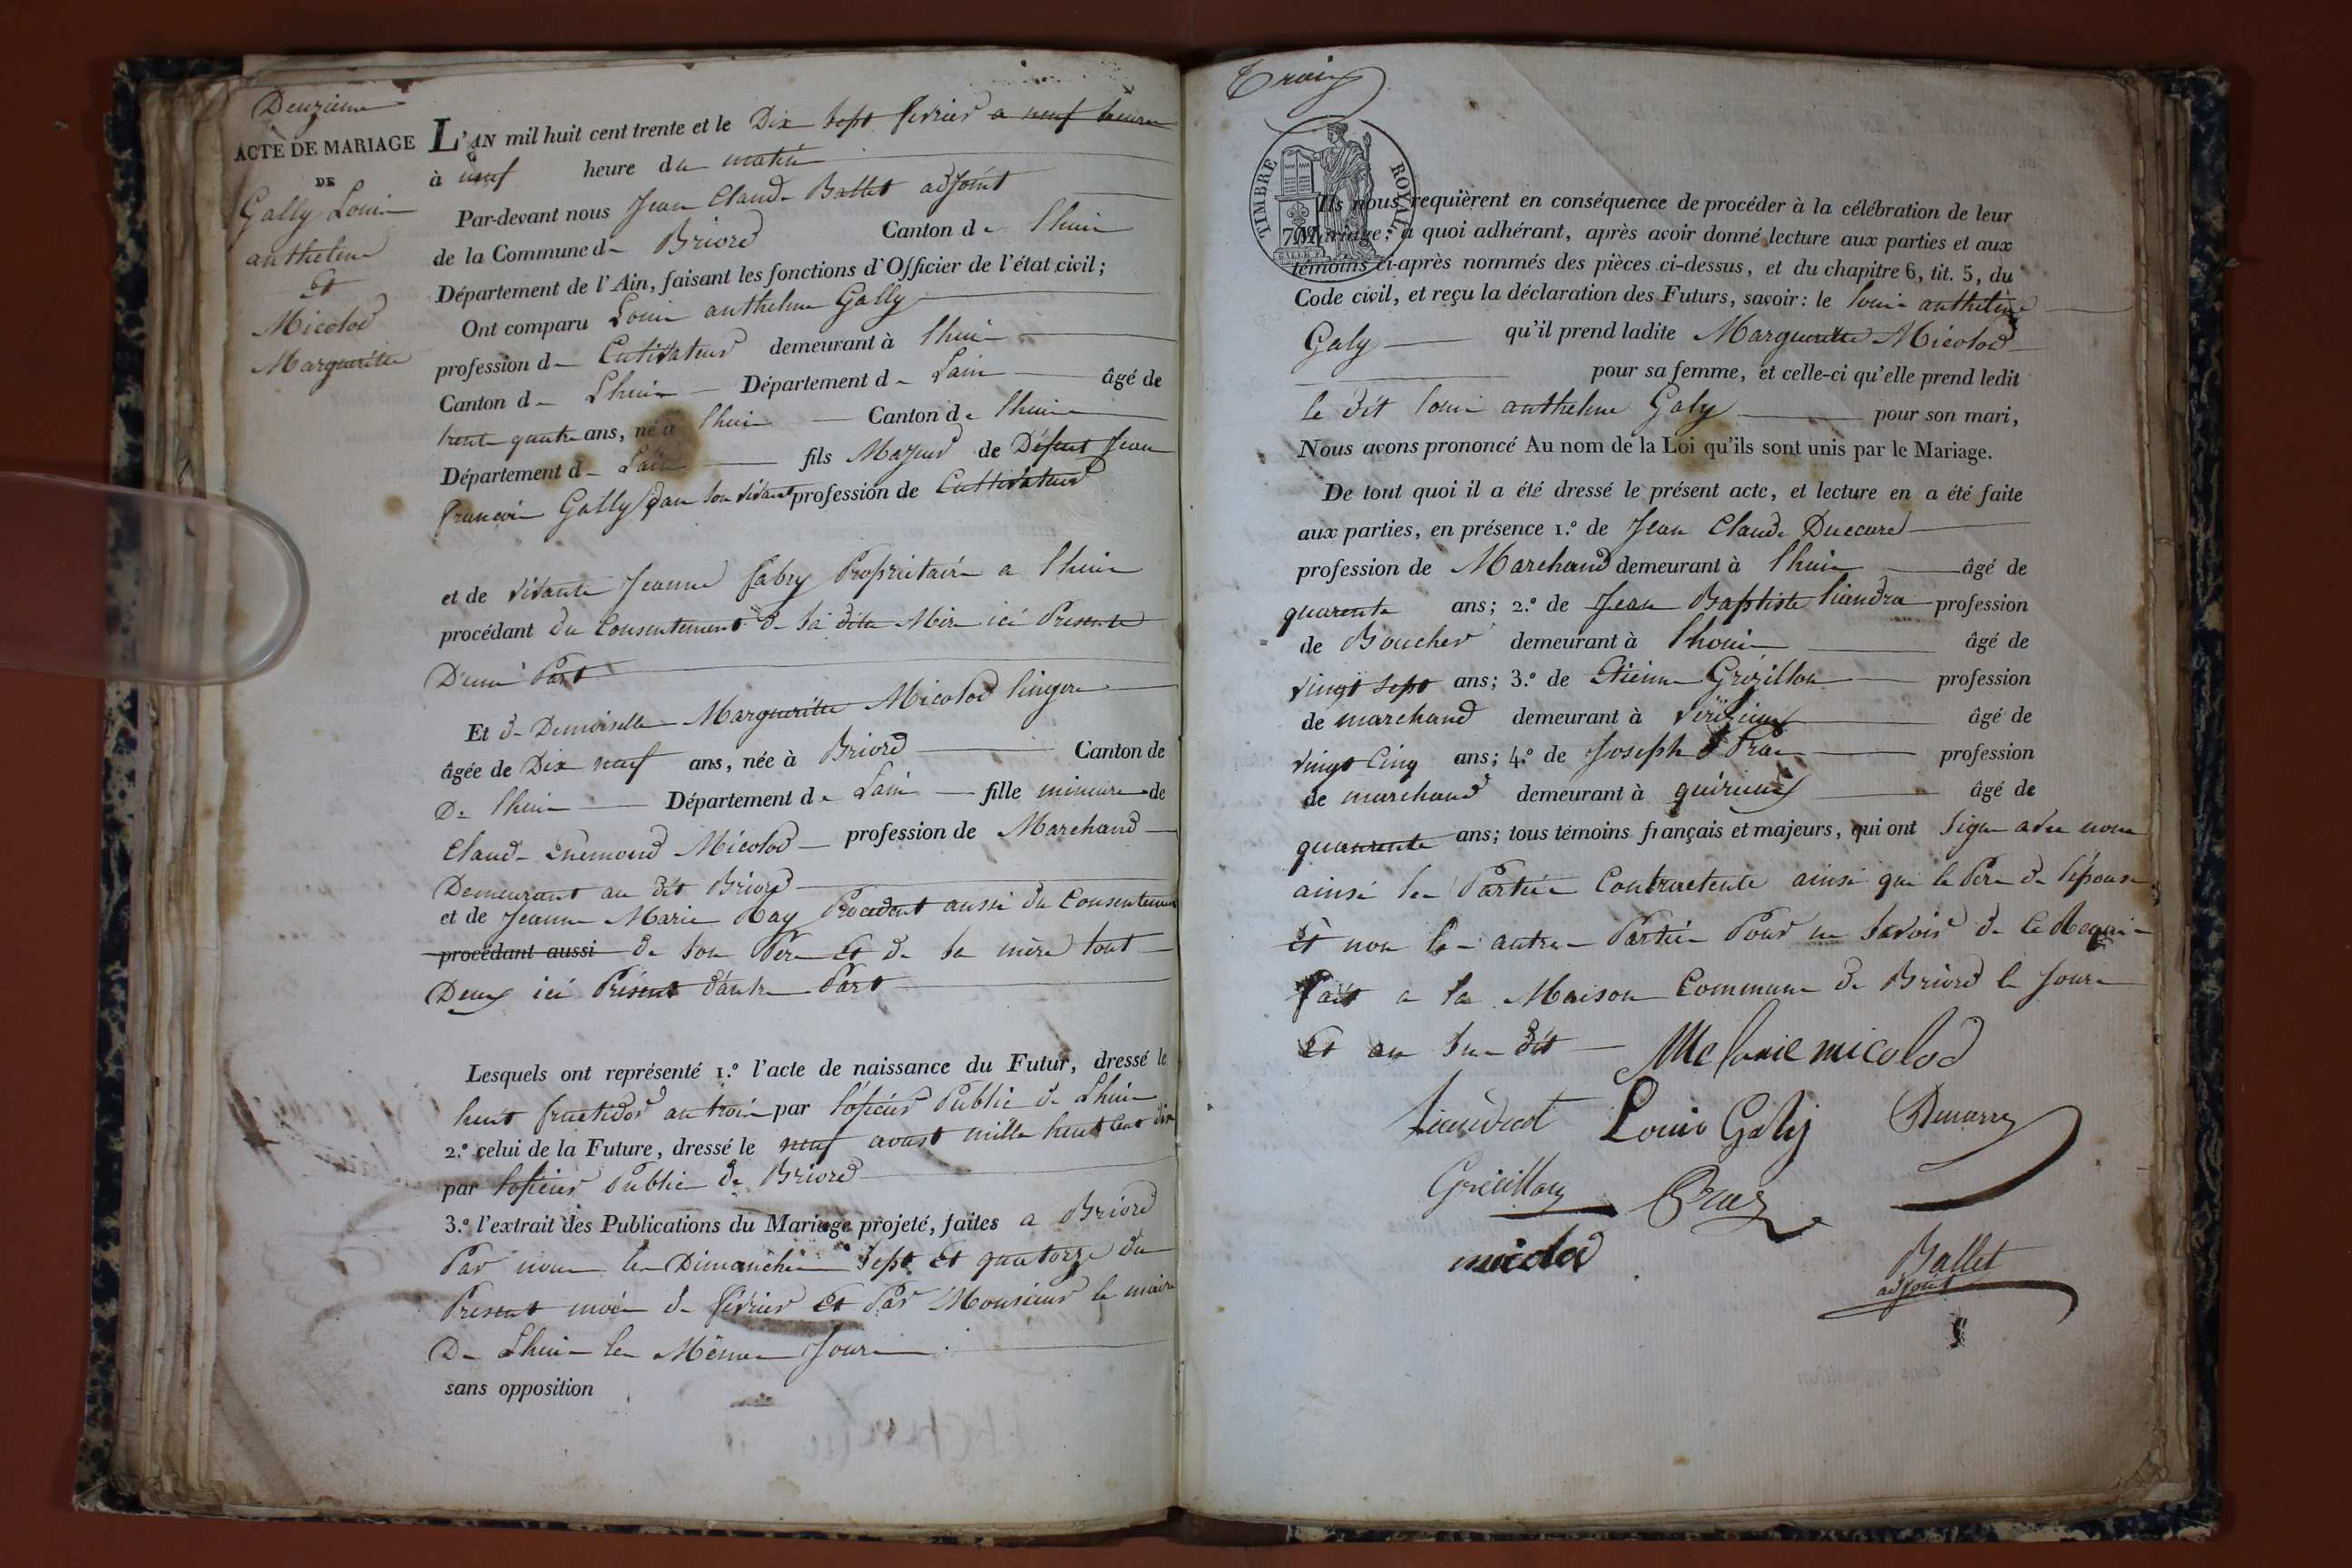 Deuzieme
ACTE DE MARIAGE
DE
Gally Louis
anthelme
Et
Micolod
Margueritte
L'AN mil huit cent trente et le Dix sept fevrier a neuf heures
à neuf heure du matin
Par-devant nous Jean Claude Ballet adjoint
de la Commune de Briord Canton de Lhuis
Département de l'Ain, faisant les fonctions d'Officier de l'état civil;
Ont comparu Louis anthelme Gally
profession de Cultivateur demeurant à Lhuis
Canton de Lhuis Département de Lain âgé de
trente quatre ans, né à Lhuis Canton de Lhuis
Département de Lain fils Majeur de Défunt Jean
francois Gally dan son vivant profession de Cultivateur
et de vivante Jeanne fabry Propriétaire a Lhuis
procédant du Consentement de sa dite Mère ici Presente
D'une Part
Et de Demoiselle Margueritte Micolod lingere
âgée de Dix neuf ans, née à Briord Canton de
De Lhuis Département de Lain fille mineure de
Claude Ennemond Micolod profession de Marchand
Demeurant au dit Briord
et de Jeanne Marie Ray Procedent aussi du Consentement
procédant aussi de son Père Et de sa mère tout
Deux ici Présent d'autre Part
Lesquels ont représenté 1.º l'acte de naissance du Futur, dressé le
huit fructidor an trois par l'oficier Public de Lhuis
2.º celui de la Future, dressé le neuf avoust mille huit Cent dix
par l'oficier Public de Briord
3.º l'extrait des Publications du Mariage projeté, faites a Briord
Par nous les Dimanche Sept Et quatorze du
Present mois de fevrier Et Par Monsieur le maire
De Lhuis les Mêmes Jours
sans opposition
Trois
TIMBRE ROYAL
Ils nous requièrent en conséquence de procéder à la célébration de leur
Mariage; à quoi adhérant, après avoir donné lecture aux parties et aux
témoins ci-après nommés des pièces ci-dessus, et du chapitre 6, tit. 5, du
Code civil, et reçu la déclaration des Futurs, savoir: le Louis anthelme
Galy qu'il prend ladite Margueritte Micolod
pour sa femme, et celle-ci qu'elle prend ledit
le dit Louis anthelme Galy pour son mari,
Nous avons prononcé Au nom de la Loi qu'ils sont unis par le Mariage.
De tout quoi il a été dressé le présent acte, et lecture en a été faite
aux parties, en présence 1.º de Jean Claude
profession de Marchand demeurant à Lhuis âgé de
quarente ans; 2.º de Jean Baptiste liandra profession
de Boucher demeurant à Lhouis âgé de
vingt sept ans; 3.º de Etienne Grézillon profession
de marchand demeurant à âgé de
vingt Cinq ans; 4.º de Joseph profession
de marchand demeurant à quirieux âgé de
quanrente ans; tous témoins français et majeurs, qui ont signe avec nous
ainsi les Parties Contractente ainsi que le Père de l'épouse
Et non les autres Parties Pour ne savoir de ce Requis
fait a la Maison Commune de Briord le Jours
Et an sus dit Micolod
Louis Galy
micolod
Ballet
adjoint